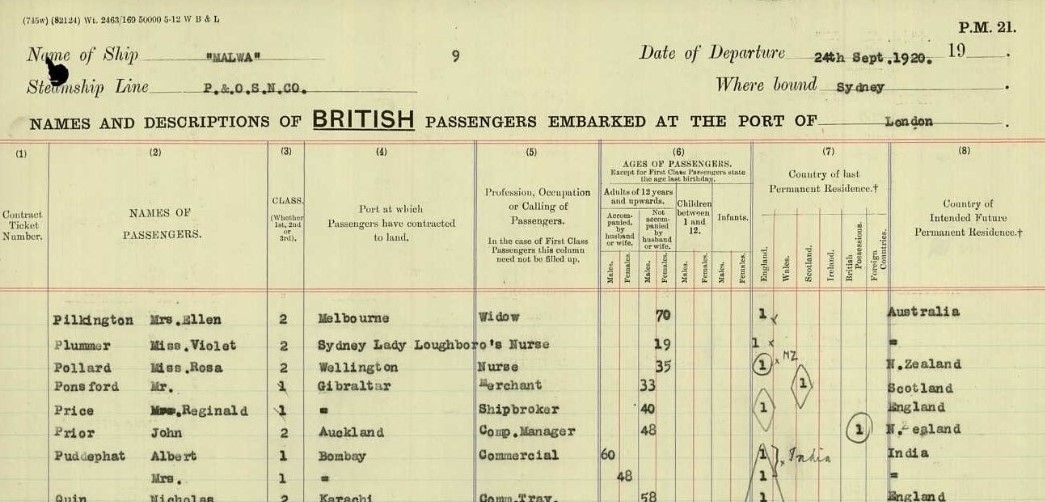 (745w) (82124) Wt. 2463/169 50000 5-12 W B & L
P.M. 21.
Name of Ship "MALWA" 9 Date of Departure 24th Sept.1920. 19 .
Steamship Line P.&.O.S.N.CO. Where bound Sydney .
NAMES AND DESCRIPTIONS OF BRITISH PASSENGERS EMBARKED AT THE PORT OF London .
(1) (2) (3) (4) (5) (6) (7) (8)
Contract Ticket Number.
NAMES OF PASSENGERS.
CLASS. (Whether 1st, 2nd or 3rd).
Port at which Passengers have contracted to land.
Profession, Occupation or Calling of Passengers.
In the case of First Class Passengers this column need not be filled up.
AGES OF PASSENGERS.
Except for First Class Passengers state the age last birthday.
Adults of 12 years and upwards.
Accompanied by husband or wife.
Not accompanied by husband or wife.
Children between 1 and 12.
Infants.
Males. Females. Males. Females. Males. Females. Males. Females.
Country of last Permanent Residence.†
England. Wales. Scotland. Ireland. British Possessions. Foreign Countries.
Country of Intended Future Permanent Residence.†
Pilkington Mrs.Ellen 2 Melbourne Widow 70 1 x Australia
Plummer Miss.Violet 2 Sydney Lady Loughboro's Nurse 19 1 x "
Pollard Miss.Rosa 2 Wellington Nurse 35 1 x NZ N.Zealand
Ponsford Mr. 1 Gibraltar Merchant 33 1 Scotland
Price Reginald 1 " Shipbroker 40 1 England
Prior John 2 Auckland Comp.Manager 48 1 N. ealand
Puddephat Albert 1 Bombay Commercial 60 1 India India
Mrs. 1 " 48 1 "
Quin Nicholas 2 Karachi Comm.Trav. 58 1 England